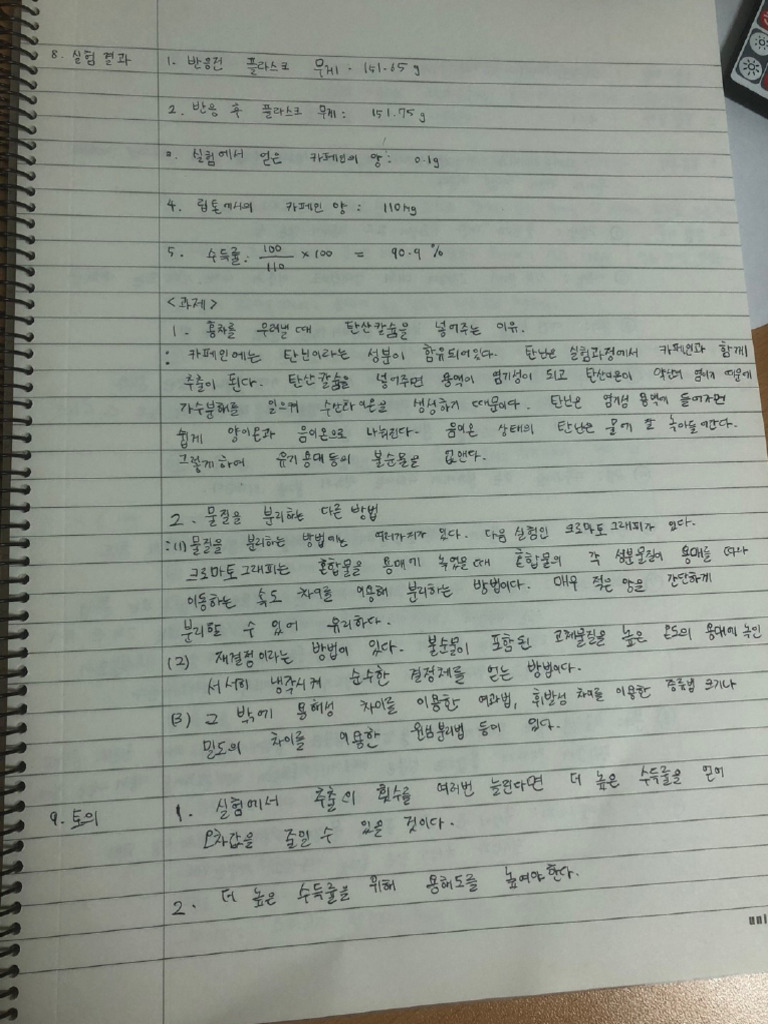 8. 실험결과
1. 반응전 플라스크 무게 · 151.65g
2. 반응 후 플라스크 무게: 151.75g
3. 실험에서 얻은 카페인의 양: 0.1g
4. 립톤에서의 카페인 양: 110mg
5. 수득률: 100/110 ×100 = 90.9 %
<과제>
1. 홍차를 우려낼 때 탄산칼슘을 넣어주는 이유.
: 카페인에는 탄닌이라는 성분이 함유되어있다. 탄닌은 실험과정에서 카페인과 함께
추출이 된다. 탄산칼슘을 넣어주면 용액이 염기성이 되고 탄산이온이 약산의 염이기 때문에
가수분해를 일으켜 수산화이온을 생성하기 때문이다. 탄닌은 염기성 용액에 들어가면
쉽게 양이온과 음이온으로 나눠진다. 음이온 상태의 탄닌은 물에 잘 녹아들어간다.
그렇게하여 유기용매 등의 불순물을 없앤다.
2. 물질을 분리하는 다른 방법
:(1) 물질을 분리하는 방법에는 여러가지가 있다. 다음 실험인 크로마토그래피가 있다.
크로마토그래피는 혼합물을 용매에 녹였을때 혼합물의 각 성분물질이 용매를 따라
이동하는 속도 차이를 이용해 분리하는 방법이다. 매우 적은 양을 간단하게
분리할 수 있어 유리하다.
(2) 재결정이라는 방법이 있다. 불순물이 포함된 고체물질을 높은 온도의 용매에 녹인
서서히 냉각시켜 순수한 결정체를 얻는 방법이다.
(3) 그 밖에 용해성 차이를 이용한 여과법, 휘발성 차이를 이용한 증류법 크기나
밀도의 차이를 이용한 원심분리법 등이 있다.
9. 토의
1. 실험에서 추출의 횟수를 여러번 늘린다면 더 높은 수득률을 얻어
오차값을 줄일 수 있을 것이다.
2. 더 높은 수득률을 위해 용해도를 높여야한다.